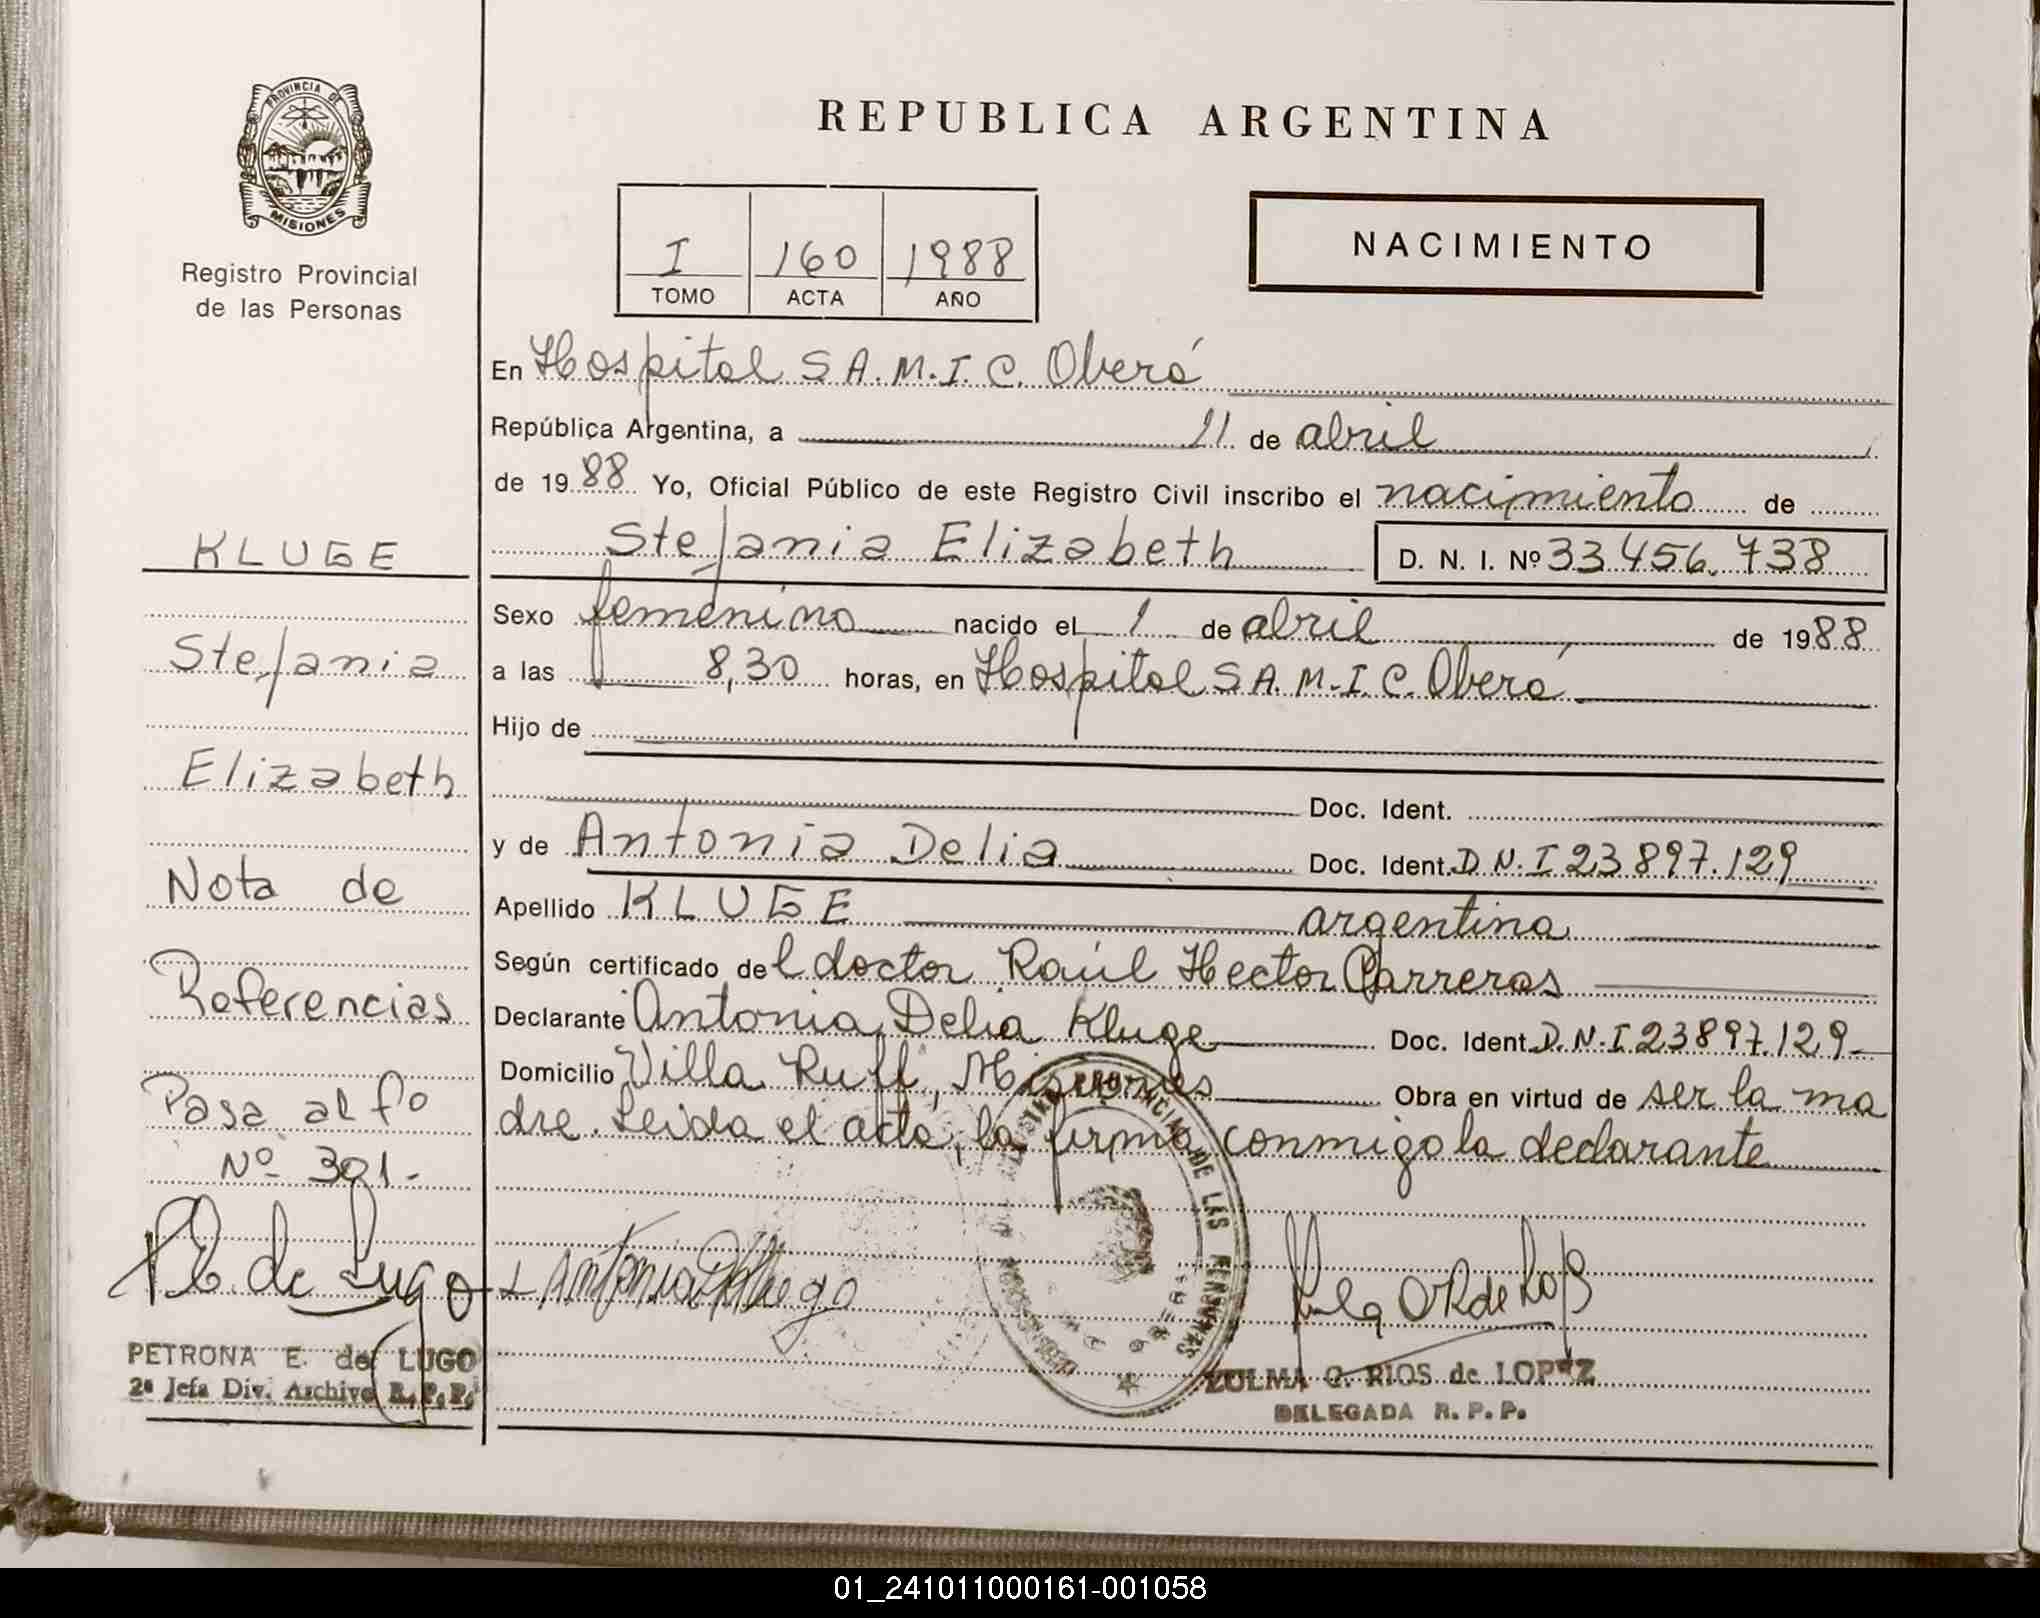 PROVINCIA DE
MISIONES
Registro Provincial
de las Personas
REPUBLICA ARGENTINA
I 160 1988
TOMO ACTA AÑO
NACIMIENTO
En Hospital S A. M. I. C. Oberá
República Argentina, a 11 de abril
de 1988 Yo, Oficial Público de este Registro Civil inscribo el nacimiento de
Stefania Elizabeth D. N. I. Nº 33.456.738
Sexo femenino nacido el 1 de abril de 1988
a las 8,30 horas, en Hospital S A. M. I. C. Oberá
Hijo de
Doc. Ident.
y de Antonia Delia Doc. Ident. D N. I 23 897.129
Apellido KLUGE argentina
Según certificado del doctor Raúl Hector Carreras
Declarante Antonia Delia Kluge Doc. Ident. D. N. I 23897.129
Domicilio Villa Ruff, Misiones Obra en virtud de ser la ma
dre. Leida el acta, la firma conmigo la declarante
KLUGE
Stefania
Elizabeth
Nota de
Referencias
Pasa al fo
Nº 391.-
P. E. de Lugo
PETRONA E. de LUGO
2ª Jefa Div. Archivo R. P. P.
DE LAS PERSONAS
ZULMA C. RIOS de LOPEZ
DELEGADA R. P. P.
01_241011000161-001058